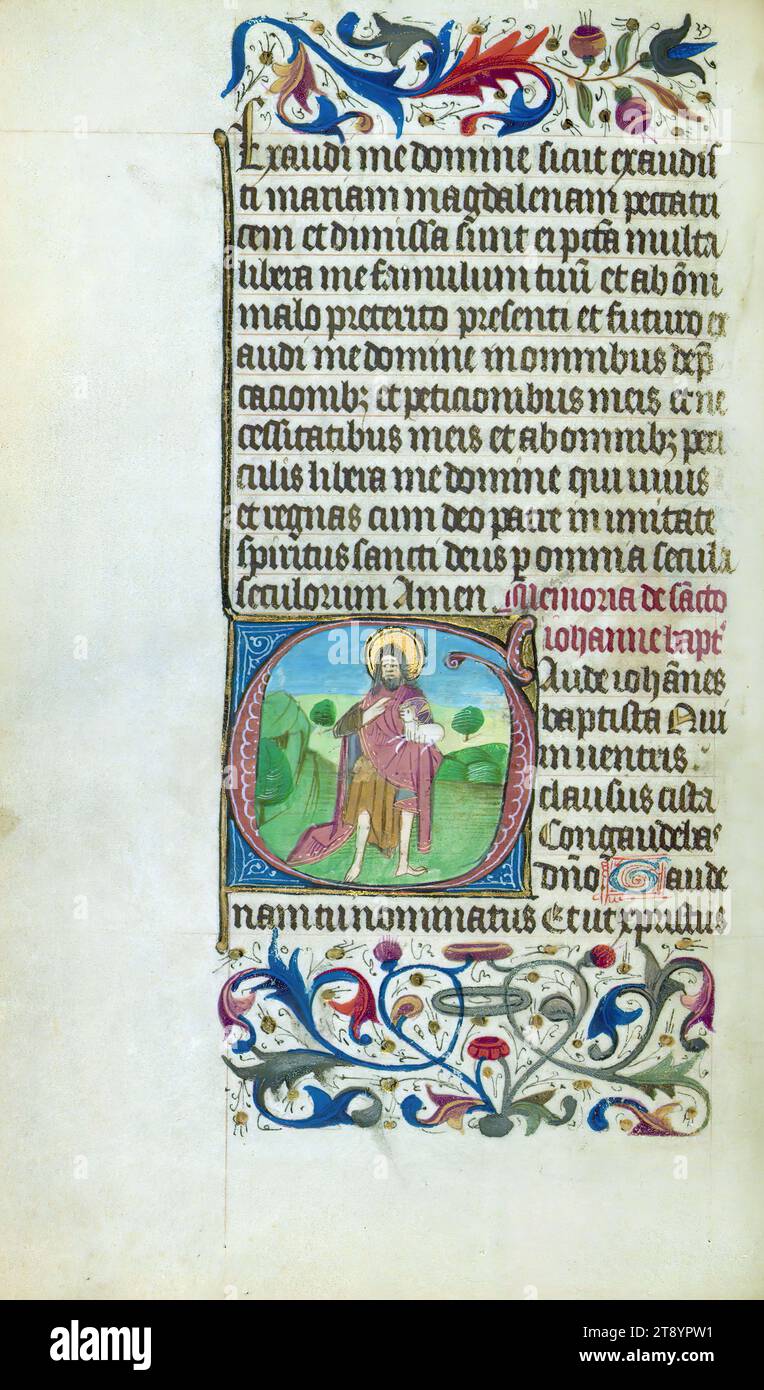 Exaudi me domine sicut exaudis
ti mariam magdalenam peccatri
cem et dimissa sunt ei pctā multa
libera me famulum tuū et ab ōni
malo preterito presenti et futuro ex
audi me domine in omnibus dep̄
cacionibꝫ et peticionibus meis et ne
cessitatibus meis et ab omnibꝫ peri
culis libera me domine qui viuis
et regnas cum deo patre in vnitate
spiritus sancti deus ꝑ omnia secula
seculorum Amen. Memoria de sācto
iohanne bapt
Gaude iohānes
baptista Qui
in ventris
clausus cista
Congaudebas
dn̄o Gaude
nam tu nominatus Et ut xp̄ristus
alamy
Image ID: 2T8YPW1
www.alamy.com